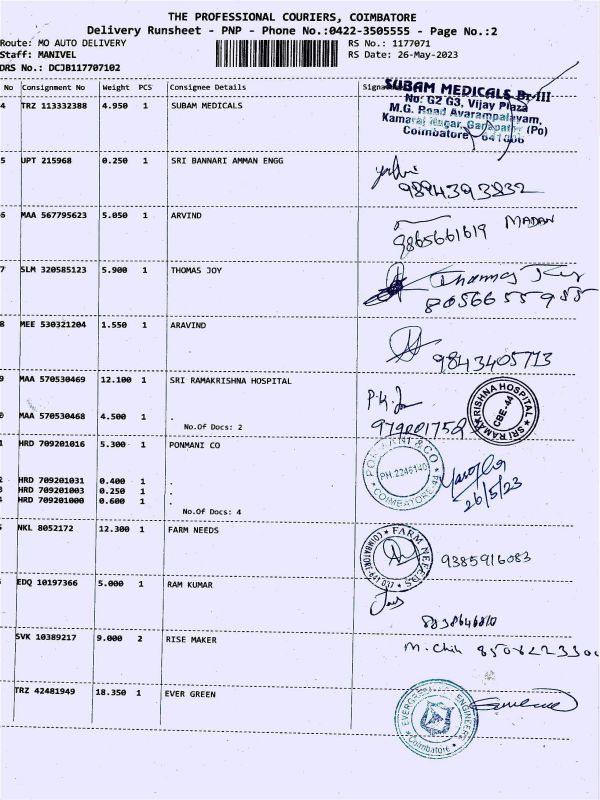 THE PROFESSIONAL COURIERS, COIMBATORE
Delivery Runsheet - PNP - Phone No.:0422-3505555 - Page No.:2
Route: MO AUTO DELIVERY RS No.: 1177071
Staff: MANIVEL RS Date: 26-May-2023
DRS No.: DCJB117707102
No Consignment No Weight PCS Consignee Details
4 TRZ 113332388 4.950 1 SUBAM MEDICALS
SUBAM MEDICALS Br-III
No: G2 G3, Vijay Plaza
M.G. Road Avarampalayam,
Kamaraj Nagar, Ganapathy (Po)
Coimbatore - 641006
5 UPT 215968 0.250 1 SRI BANNARI AMMAN ENGG
9894393832
6 MAA 567795623 5.050 1 ARVIND
9865661619 MADAN
7 SLM 320585123 5.900 1 THOMAS JOY
Thomas Joy
8056655985
8 MEE 530321204 1.550 1 ARAVIND
9843405713
9 MAA 570530469 12.100 1 SRI RAMAKRISHNA HOSPITAL
SRI RAMAKRISHNA HOSPITAL
CBE-44
0 MAA 570530468 4.500 1 .
No.Of Docs: 2
1 HRD 709201016 5.300 1 PONMANI CO
PONMANI & CO
PH:2246140
COIMBATORE-44
26/5/23
2 HRD 709201031 0.400 1 .
3 HRD 709201003 0.250 1 .
4 HRD 709201000 0.600 1 .
No.Of Docs: 4
5 NKL 8052172 12.300 1 FARM NEEDS
FARM NEEDS
COIMBATORE-641 037
9385916083
EDQ 10197366 5.000 1 RAM KUMAR
SVK 10389217 9.000 2 RISE MAKER
TRZ 42481949 18.350 1 EVER GREEN
EVERGREEN ENGINEER
Coimbatore